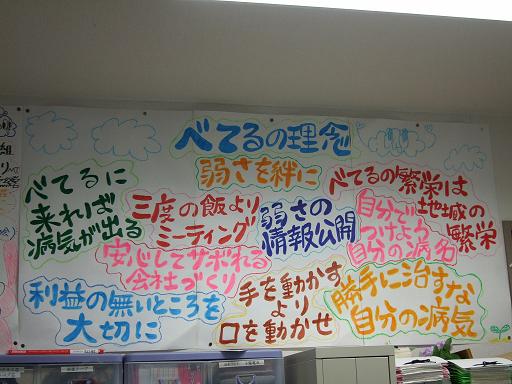 べてるの理念
弱さを絆に
べてるに
来れば
病気が出る
三度の飯より
ミーティング
弱さの
情報公開
べてるの繁栄は
地域の
繁栄
自分で
つけよう
自分の病名
安心してサボれる
会社づくり
利益の無いところを
大切に
手を動かす
より
口を動かせ
勝手に治すな
自分の病気